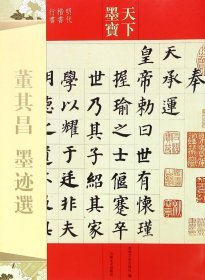 天下
墨寶
明代
楷書
行書
董其昌 墨迹選
天承運
皇帝勅曰世有懷瑾
握瑜之士偃蹇卒
世乃其子紹其家
學以耀于廷非夫
明德之遺